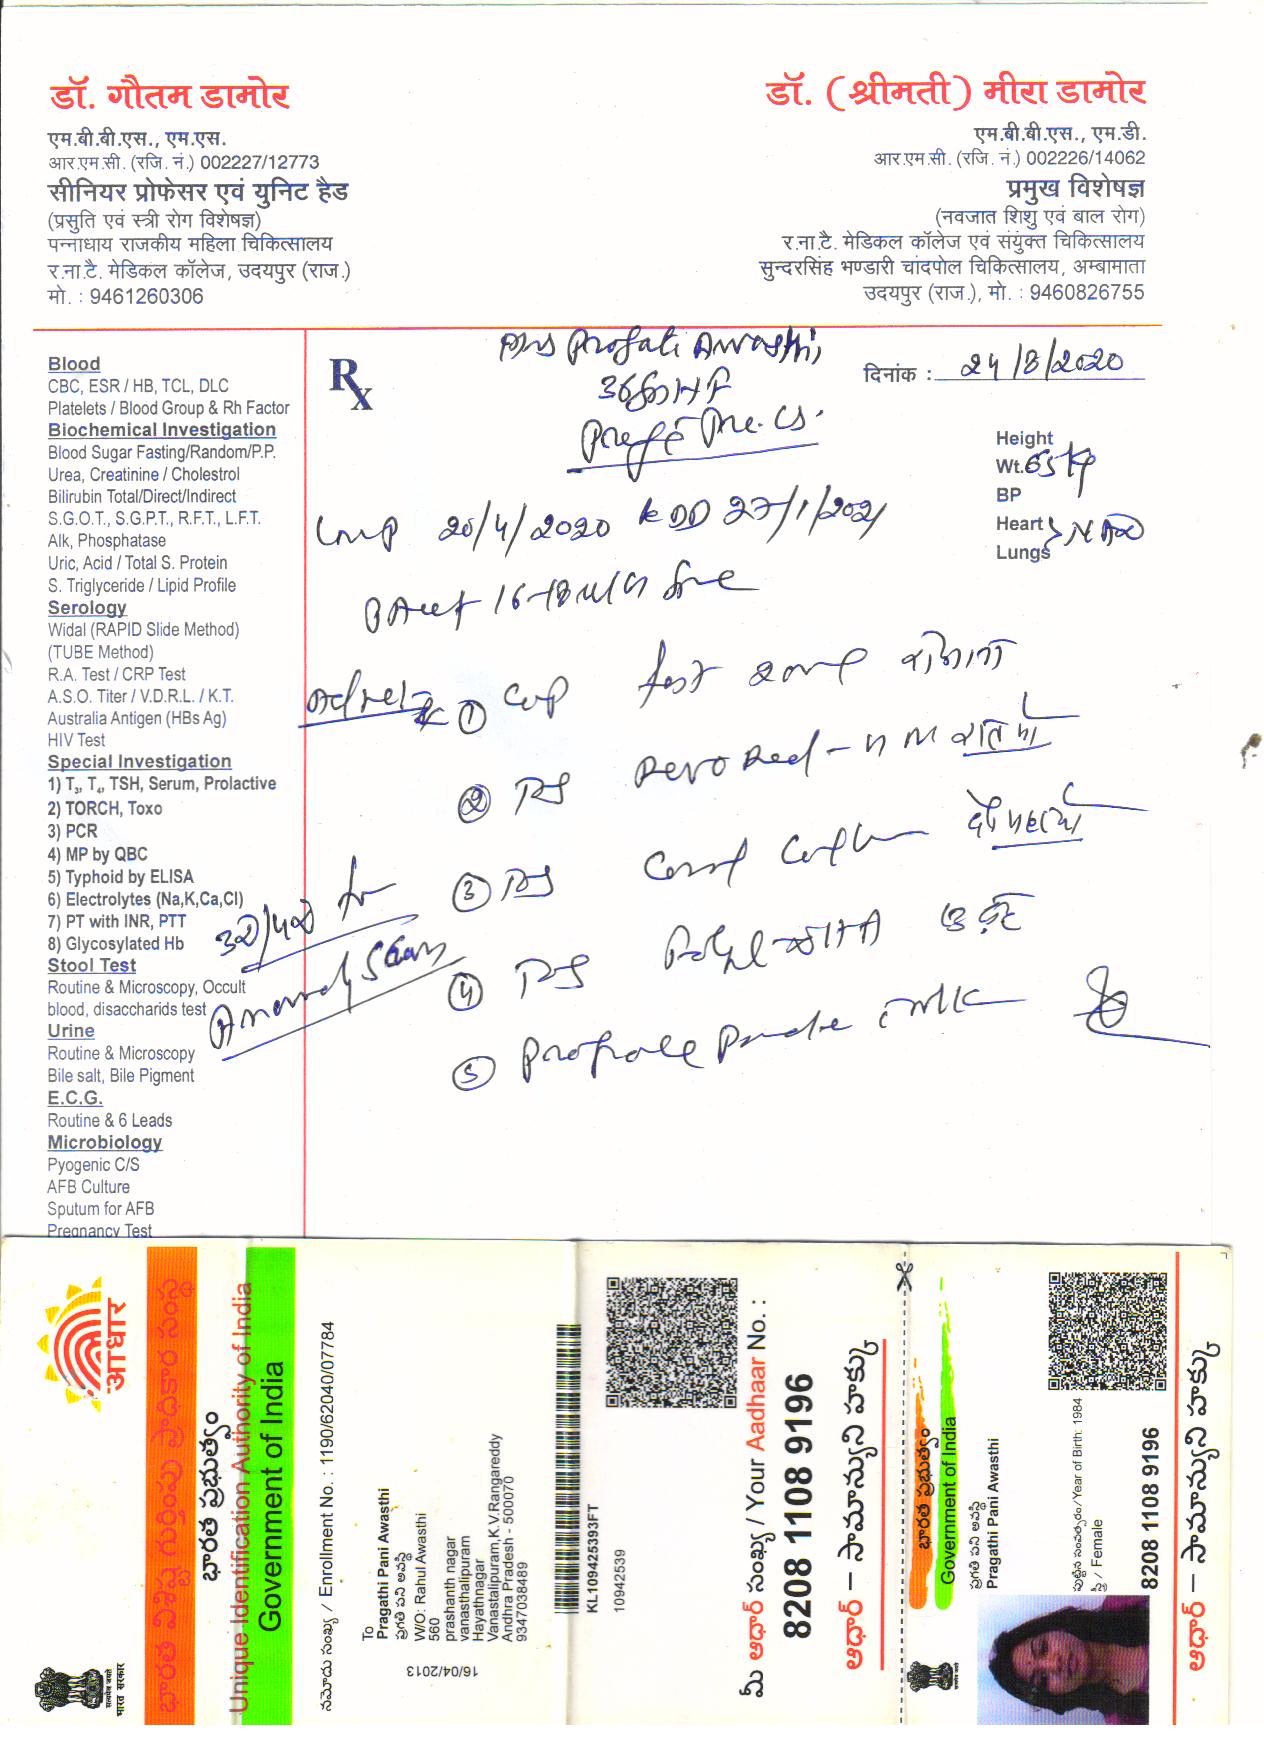 डॉ. गौतम डामोर
एम.बी.बी.एस., एम.एस.
आर.एम.सी. (रजि. नं.) 002227/12773
सीनियर प्रोफेसर एवं युनिट हैड
(प्रसुति एवं स्त्री रोग विशेषज्ञ)
पन्नाधाय राजकीय महिला चिकित्सालय
र.ना.टै. मेडिकल कॉलेज, उदयपुर (राज.)
मो. : 9461260306
डॉ. (श्रीमती) मीरा डामोर
एम.बी.बी.एस., एम.डी.
आर.एम.सी. (रजि. नं.) 002226/14062
प्रमुख विशेषज्ञ
(नवजात शिशु एवं बाल रोग)
र.ना.टै. मेडिकल कॉलेज एवं संयुक्त चिकित्सालय
सुन्दरसिंह भण्डारी चांदपोल चिकित्सालय, अम्बामाता
उदयपुर (राज.), मो. : 9460826755
Blood
CBC, ESR / HB, TCL, DLC
Platelets / Blood Group & Rh Factor
Biochemical Investigation
Blood Sugar Fasting/Random/P.P.
Urea, Creatinine / Cholestrol
Bilirubin Total/Direct/Indirect
S.G.O.T., S.G.P.T., R.F.T., L.F.T.
Alk, Phosphatase
Uric, Acid / Total S. Protein
S. Triglyceride / Lipid Profile
Serology
Widal (RAPID Slide Method)
(TUBE Method)
R.A. Test / CRP Test
A.S.O. Titer / V.D.R.L. / K.T.
Australia Antigen (HBs Ag)
HIV Test
Special Investigation
1) T3, T4, TSH, Serum, Prolactive
2) TORCH, Toxo
3) PCR
4) MP by QBC
5) Typhoid by ELISA
6) Electrolytes (Na,K,Ca,Cl)
7) PT with INR, PTT
8) Glycosylated Hb
Stool Test
Routine & Microscopy, Occult
blood, disaccharids test
Urine
Routine & Microscopy
Bile salt, Bile Pigment
E.C.G.
Routine & 6 Leads
Microbiology
Pyogenic C/S
AFB Culture
Sputum for AFB
Pregnancy Test
Rx
Awasthi
दिनांक : 24/8/2020
Height
Wt. 65 kg
BP
Heart NAD
Lungs
Lmp 20/4/2020 EDD 27/1/2021
①
②
③
④
⑤ Powder Milk
Anomaly Scan
आधार
भारत सरकार
భారత విశిష్ట గుర్తింపు ప్రాధికార సంస్థ
భారత ప్రభుత్వం
Unique Identification Authority of India
Government of India
నమోదు సంఖ్య / Enrollment No. : 1190/62040/07784
To
Pragathi Pani Awasthi
ప్రగతి పని అవస్థి
W/O: Rahul Awasthi
560
prashanth nagar
vanasthalipuram
Hayathnagar
Vanastalipuram,K.V.Rangareddy
Andhra Pradesh - 500070
9347038489
16/04/2013
KL109425393FT
10942539
మీ ఆధార్ సంఖ్య / Your Aadhaar No. :
8208 1108 9196
ఆధార్ – సామాన్యుని హక్కు
భారత ప్రభుత్వం
Government of India
ప్రగతి పని అవస్థి
Pragathi Pani Awasthi
పుట్టిన సంవత్సరం/Year of Birth: 1984
స్త్రీ / Female
8208 1108 9196
ఆధార్ – సామాన్యుని హక్కు